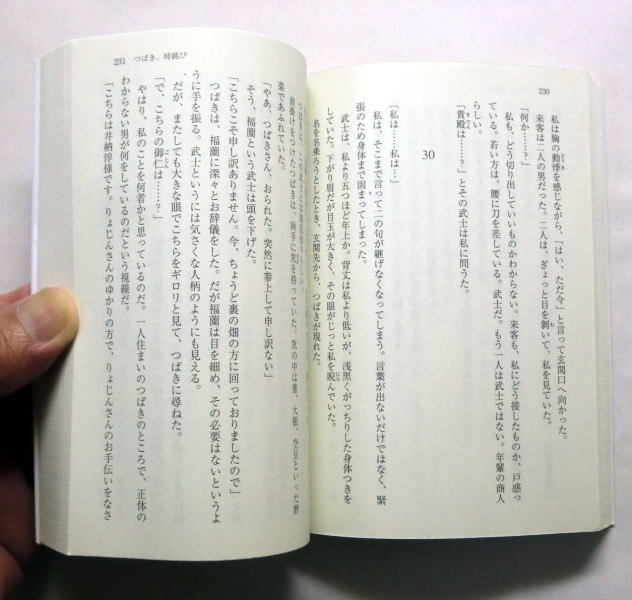 230
私は胸の動悸を感じながら、「はい、ただ今」と言って玄関口へ向かった。
来客は二人の男だった。二人は、ぎょっと目を剝いて、私を見ていた。
「何か……？」
私も、どう切り出していいものかわからない。来客も、私にどう接したものか、戸惑っ
ている。若い方は、腰に刀を差している。武士だ。もう一人は武士ではない。年輩の商人
らしい。
「貴殿は……？」とその武士は私に問うた。
30
「私は……私は…」
私は、そこまで言って二の句が継げなくなってしまう。言葉が出ないだけではなく、緊
張のため身体まで固まってしまった。
武士は、私より五つほど年上か。背丈は私より低いが、浅黒くがっちりした身体つきを
していた。下がり眉だが目玉が大きく、その眼がじっと私を睨んでいた。
名を名乗ろうとしたとき、玄関先から、つばきが現れた。
231 つばき、時跳び
前掛けをつけたつばきは、両手に笊を持っていた。笊の中は葱、大根、空豆といった野
菜であふれていた。
「やあ、つばきさん、おられた。突然に参上して申し訳ない」
そう、福蘭という武士は頭を下げた。
「こちらこそ申し訳ありません。今、ちょうど裏の畑の方に回っておりましたので」
つばきは、福蘭に深々とお辞儀をした。だが福蘭は目を細め、その必要はないというよ
うに手を振る。武士というには気さくな人柄のようにも見える。
だが、またしても大きな眼でこちらをギロリと見て、つばきに尋ねた。
「で、こちらの御仁は……？」
やはり、私のことを何者かと思っているのだ。一人住まいのつばきのところで、正体の
わからない男が何をしているのだという視線だ。
「こちらは井納惇様です。りょじんさんのゆかりの方で、りょじんさんのお手伝いをなさ